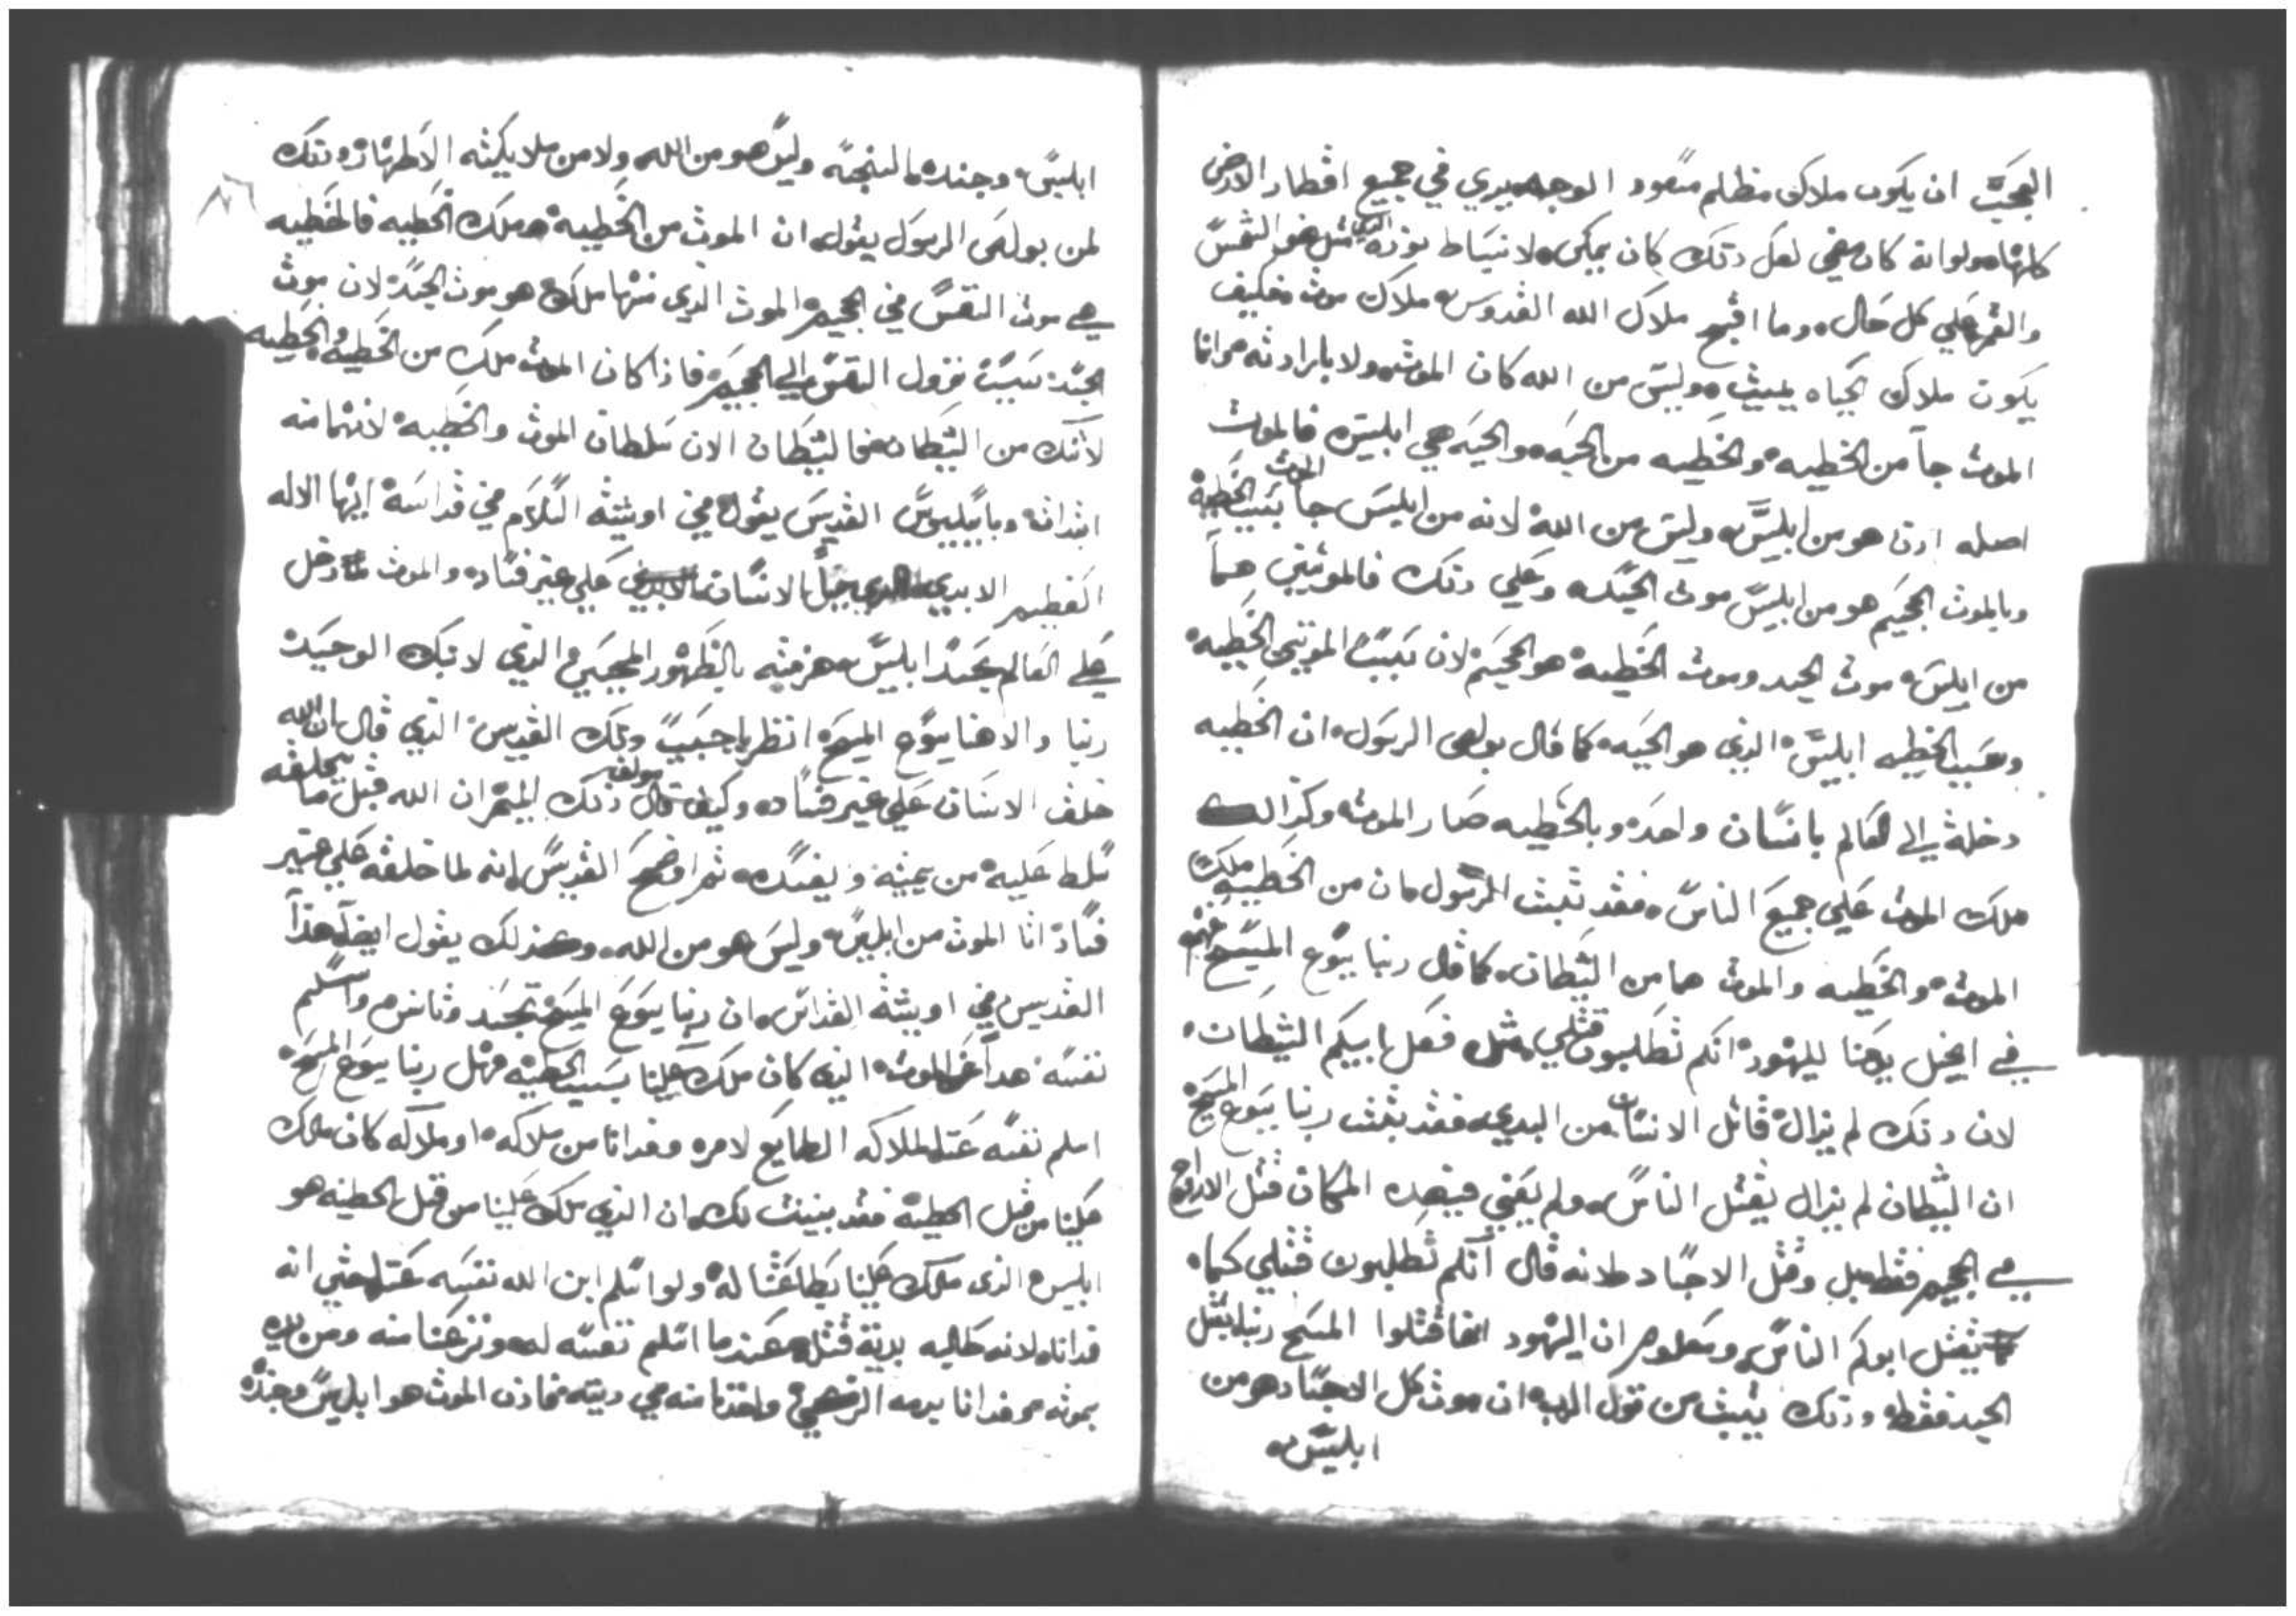 العجب ان يكون ملاك مظلم مسود الوجه يري في جميع اقطار الارض
كلها ولو انه كان مضي لعل دلك كان يمكن لانبساط نوره الدي مثل ضو الشمس
والقمر علي كل حال وما اقبح ملاك الله القدوس ملاك موت فكيف
يكون ملاك الحياه يميت وليس من الله كان الموت ولا بارادته وانا
الموت جا من الخطيه والخطيه من الحيه والحيه هي ابليس فالموت
اصله ادن هو من ابليس وليس من الله لانه من ابليس جا الموت بسبب الخطية
وبالموت الجحيم هو من ابليس موت الجسد وعلي دلك فالموتين هما
من ابليس موت الجسد وموت الخطيه هو الجحيم لان بسبب الموتين الخطيه
وسبب الخطيه ابليس الدي هو الحيه كما قال بولص الرسول ان الخطيه
دخلة الي العالم بانسان واحد وبالخطيه صار الموت وكدالك
ملك الموت علي جميع الناس فقد تبت الرسول ان من الخطيه ملك
الموت والخطيه والموت هما من الشيطان كما قال ربنا يسوع المسيح عنه
في انجيل يوحنا لليهود انكم تطلبون قتلي مثل فعل ابيكم الشيطان
لان دلك لم يزال قاتل الانسان من البدي فقد تبت ربنا يسوع المسيح
ان الشيطان لم يزال يقتل الناس ولم يعني قتل الارواح
في الجحيم فقط بل وقتل الاجساد لانه قال انكم تطلبون قتلي كما
يقتل ابوكم الناس ومعلوم ان اليهود انما قتلوا المسيح ربنا بقتل
الجسد فقط ودلك يتبت من قول الرب ان موت كل الاجساد هو من
ابليس
ابليس وجنده النجسة وليس هو من الله ولا من ملايكته الاطهار ودلك
لمن بولص الرسول يقول ان الموت من الخطيه ملك الخطيه فالخطيه
هي موت النفس في الجحيم الموت الدي منها ملك هو موت الجسد لان موت
الجسد سبب نزول النفس الي الجحيم فادا كان الموت ملك من الخطيه والخطيه
لاتك من الشيطان فالشيطان الان سلطان الموت والخطيه لانهما منه
ابتداته وباسيليوس القديس يقول في اوشية السلام في قداسه ايها الاله
العظيم الابدي الدي جبل الانسان علي غير فساد والموت دخل
علي العالم بحسد ابليس هزمته بالظهور المحيي الدي لابنك الوحيد
ربنا والاهنا يسوع المسيح انظر يا حبيب دلك القديس الدي قال ان الله
خلق الانسان علي غير فساد وكيف قال مولف دلك الميمر ان الله قبل ما يخلقه
سلط عليه من يميته ويفسده ثم اوضح القديس انه لما خلقه علي غير
فساد اتا الموت من ابليس وليس هو من الله وكدلك يقول ايضا هدا
القديس في اوشية القداس ان ربنا يسوع المسيح تجسد وتانس واسلم
نفسه فدا عن الموت الدي كان ملك علينا بسبب الخطيه فهل ربنا يسوع المسيح
اسلم نفسه عنا لملاكه الطايع لامره وفدانا من ملاكه او ملاكه كان ملك
علينا من قبل الخطيه فقد بينت لك ان الدي ملك علينا من قبل الخطيه هو
ابليس الدي ملك علينا بطاعتنا له ولو اسلم ابن الله نفسه عنا حتي انه
فدانا لانه طالبه بدية قتله عندما اسلم نفسه له ونزعنا منه ومن يده
بموته وفدانا بدمه الزكي واخدنا منه في ديته فادن الموت هو ابليس وجنده